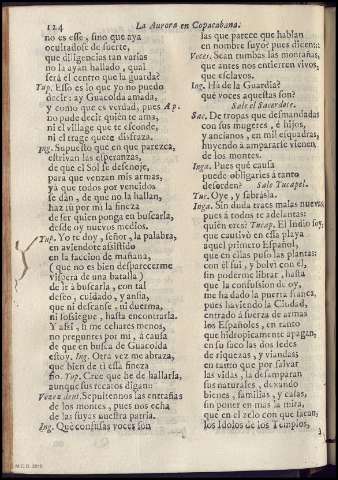 124
La Aurora en Copacabana.
no es esse, sino que aya
ocultadose de suerte,
que diligencias tan varias
no la ayan hallado, qual
será el centro que la guarda?
Tup. Esso es lo que yo no puedo
decir: ay Guacolda amada,
y como que es verdad, pues Ap.
no pude decir quien te ama,
ni el village que te esconde,
ni el trage que te disfraza.
Ing. Supuesto que en que parezca,
estrivan las esperanzas,
de que el Sol se desenoje,
para que venzan mis armas,
ya que todos por vencidos
se dán, de que no la hallan,
haz tu por mi la fineza
de ser quien ponga en buscarla,
desde oy nuevos medios.
Tup. Yo te doy, señor, la palabra,
en aviendote assistido
en la faccion de mañana,
( que no es bien desparecerme
vispera de una batalla )
de ir à buscarla, con tal
deseo, cuidado, y ansia,
que ni descanse, ni duerma,
ni sossiegue, hasta encontrarla.
Y assi, si me echares menos,
no preguntes por mi, à causa
de que en busca de Guacolda
estoy. Ing. Otra vez me abraza,
que bien de ti essa fineza
fio. Tup. Cree que he de hallarla,
aunque sus recatos digan:
Vozes dent. Sepultennos las entrañas
de los montes, pues nos echa
de las suyas nuestra patria.
Ing. Què confusas voces son
las que parece que hablan
en nombre suyo? pues dicen::
Voces. Sean tumbas las montañas,
que antes nos entierren vivos,
que esclavos.
Ing. Ha de la Guardia?
què voces aquestas son?
Sale el Sacerdote.
Sac. De tropas que desmandadas
con sus mugeres, è hijos,
y ancianos, en mil esquadras,
huyendo à ampararse vienen
de los montes.
Inga. Pues què causa
puede obligarles à tanto
desorden? Sale Tucapel.
Tuc. Oye, y sabrasla.
Inga. Sin duda traes malas nuevas,
pues à todos te adelantas:
quien eres? Tucap. El Indio soy,
que cautivò en essa playa
aquel primero Español,
que en ellas puso las plantas:
con èl fui, y bolvi con èl,
sin poderme librar, hasta
que la confusion de oy,
me ha dado la puerta franca,
pues haviendo la Ciudad,
entrado à fuerza de armas
los Españoles, en tanto
que hidropicamente apagan,
en su saco las dos sedes
de riquezas, y viandas;
en tanto que por salvar
las vidas, la desamparan
sus naturales, dexando
bienes, familias, y casas,
sin poner en mas la mira,
que en el zelo con que sacan;
los Idolos de los Templos,